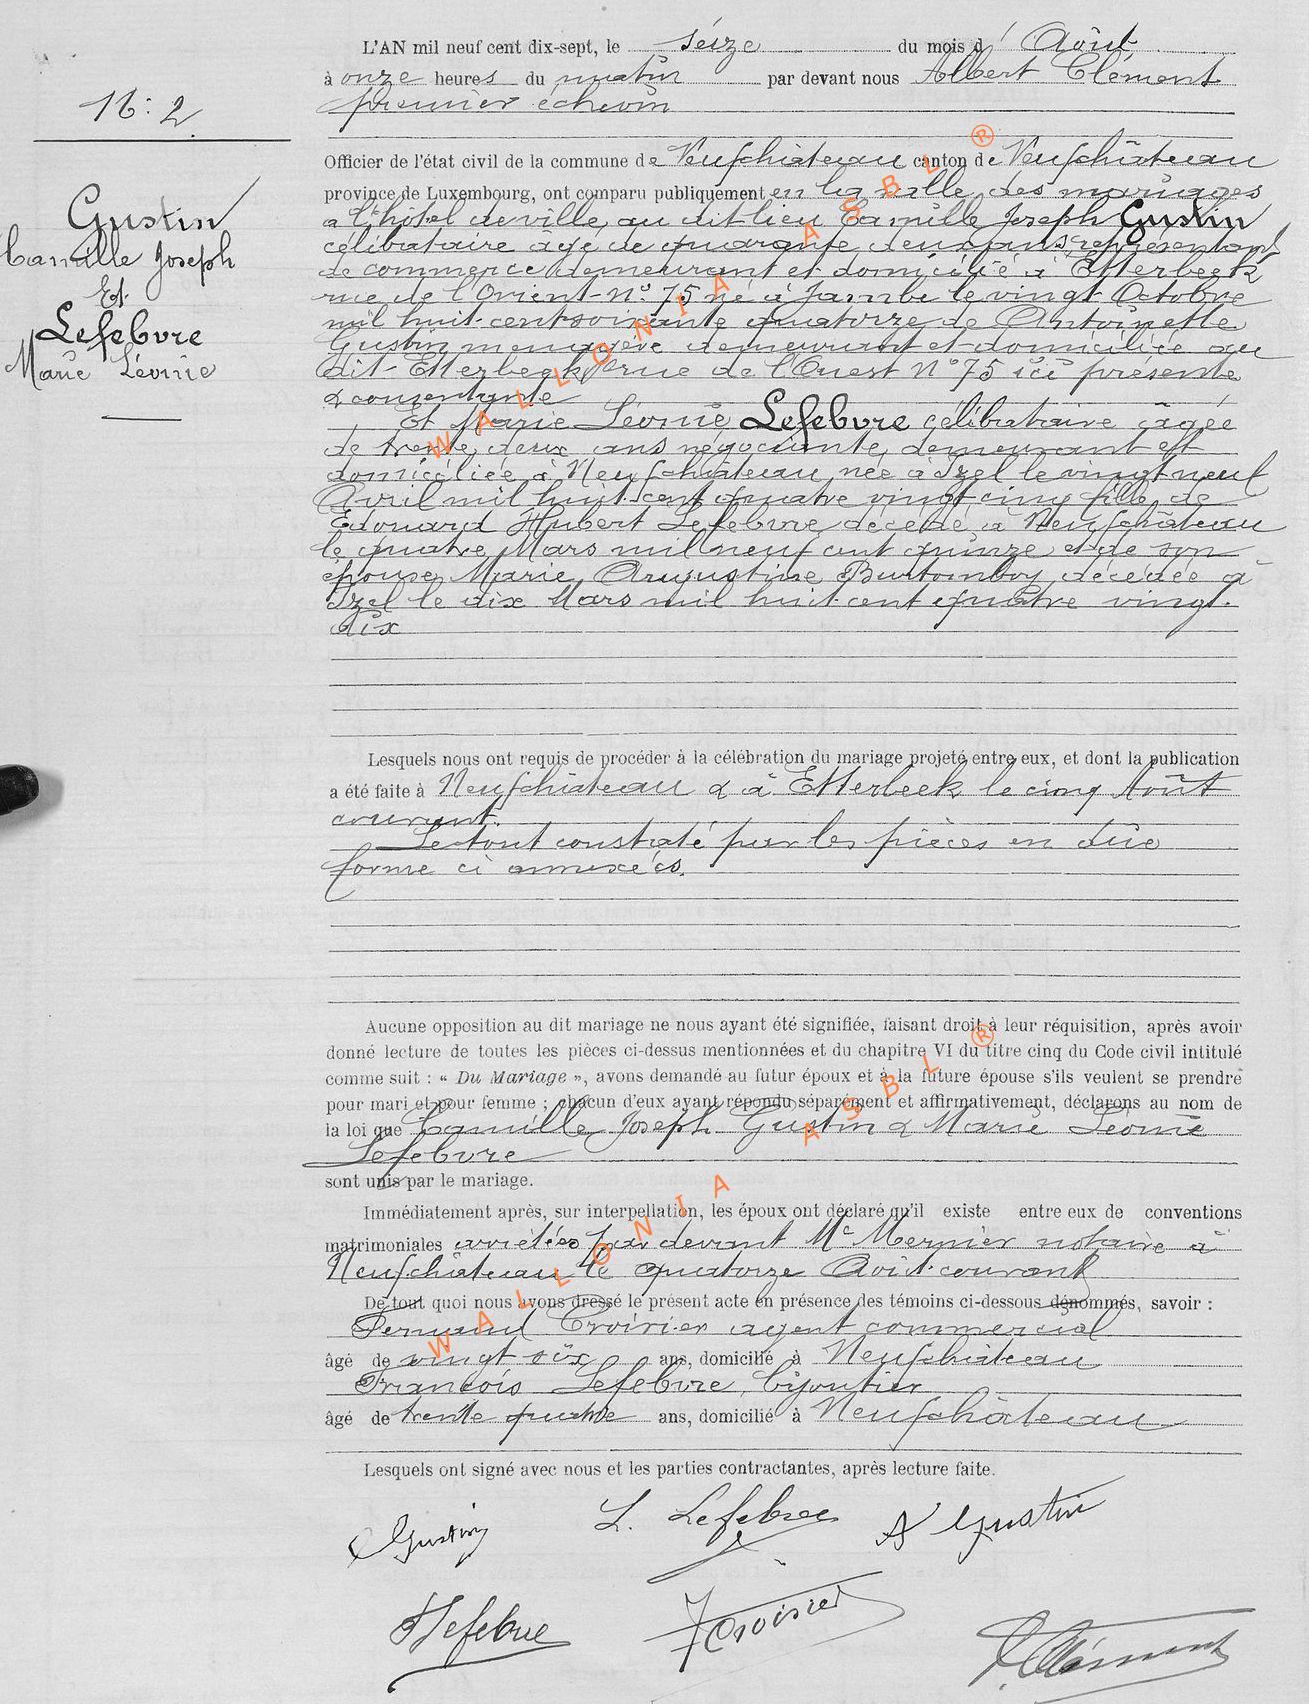 L'AN mil neuf cent dix-sept, le seize du mois d' Août
à onze heures du matin par devant nous Albert Clément
premier échevin
N: 2.
Officier de l'état civil de la commune de Neufchâteau canton de Neufchâteau
province de Luxembourg, ont comparu publiquement en la salle des mariages
a l'hôtel de ville au dit lieu Camille Joseph Gustin
célibataire âgé de quarante deux ans représentant
de commerce demeurant et domicilié à Etterbeek
rue de l'Orient N° 75 né à Jambe le vingt Octobre
mil huit cent soixante quatorze de Antoinette
Gustin ménagère demeurant et domiciliée au
dit Etterbeek rue de l'Ouest N° 75 ici présente
& consentante
Gustin
Camille Joseph
Et
Lefebvre
Marie Léonie
Et Marie Léonie Lefebvre célibataire âgée
de trente deux ans négociante demeurant et
domiciliée à Neufchâteau née à Izel le vingt neuf
Avril mil huit cent quatre vingt cinq fille de
Edouard Hubert Lefebvre décédé à Neufchâteau
le quatre Mars mil neuf cent quinze et de son
épouse Marie Augustine Burtomboy décédée à
Izel le dix Mars mil huit cent quatre vingt
dix
Lesquels nous ont requis de procéder à la célébration du mariage projeté entre eux, et dont la publication
a été faite à Neufchâteau & à Etterbeek le cinq Août
courant.
Le tout constaté par les pièces en due
forme ci annexées.
Aucune opposition au dit mariage ne nous ayant été signifiée, faisant droit à leur réquisition, après avoir
donné lecture de toutes les pièces ci-dessus mentionnées et du chapitre VI du titre cinq du Code civil intitulé
comme suit : « Du Mariage », avons demandé au futur époux et à la future épouse s'ils veulent se prendre
pour mari et pour femme ; chacun d'eux ayant répondu séparément et affirmativement, déclarons au nom de
la loi que Camille Joseph Gustin & Marie Léonie
Lefebvre
sont unis par le mariage.
Immédiatement après, sur interpellation, les époux ont déclaré qu'il existe entre eux de conventions
matrimoniales arrêtées par devant Me Mernier notaire à
Neufchâteau le quatorze Août courant
De tout quoi nous avons dressé le présent acte en présence des témoins ci-dessous dénommés, savoir :
Fernand Croisier agent commercial
âgé de vingt six ans, domicilié à Neufchâteau
François Lefebvre, bijoutier
âgé de trente quatre ans, domicilié à Neufchâteau
Lesquels ont signé avec nous et les parties contractantes, après lecture faite.
C Gustin L. Lefebvre A Gustin
F Lefebvre F Croisier A. Clément
WALLONIA ASBL ®
WALLONIA ASBL ®